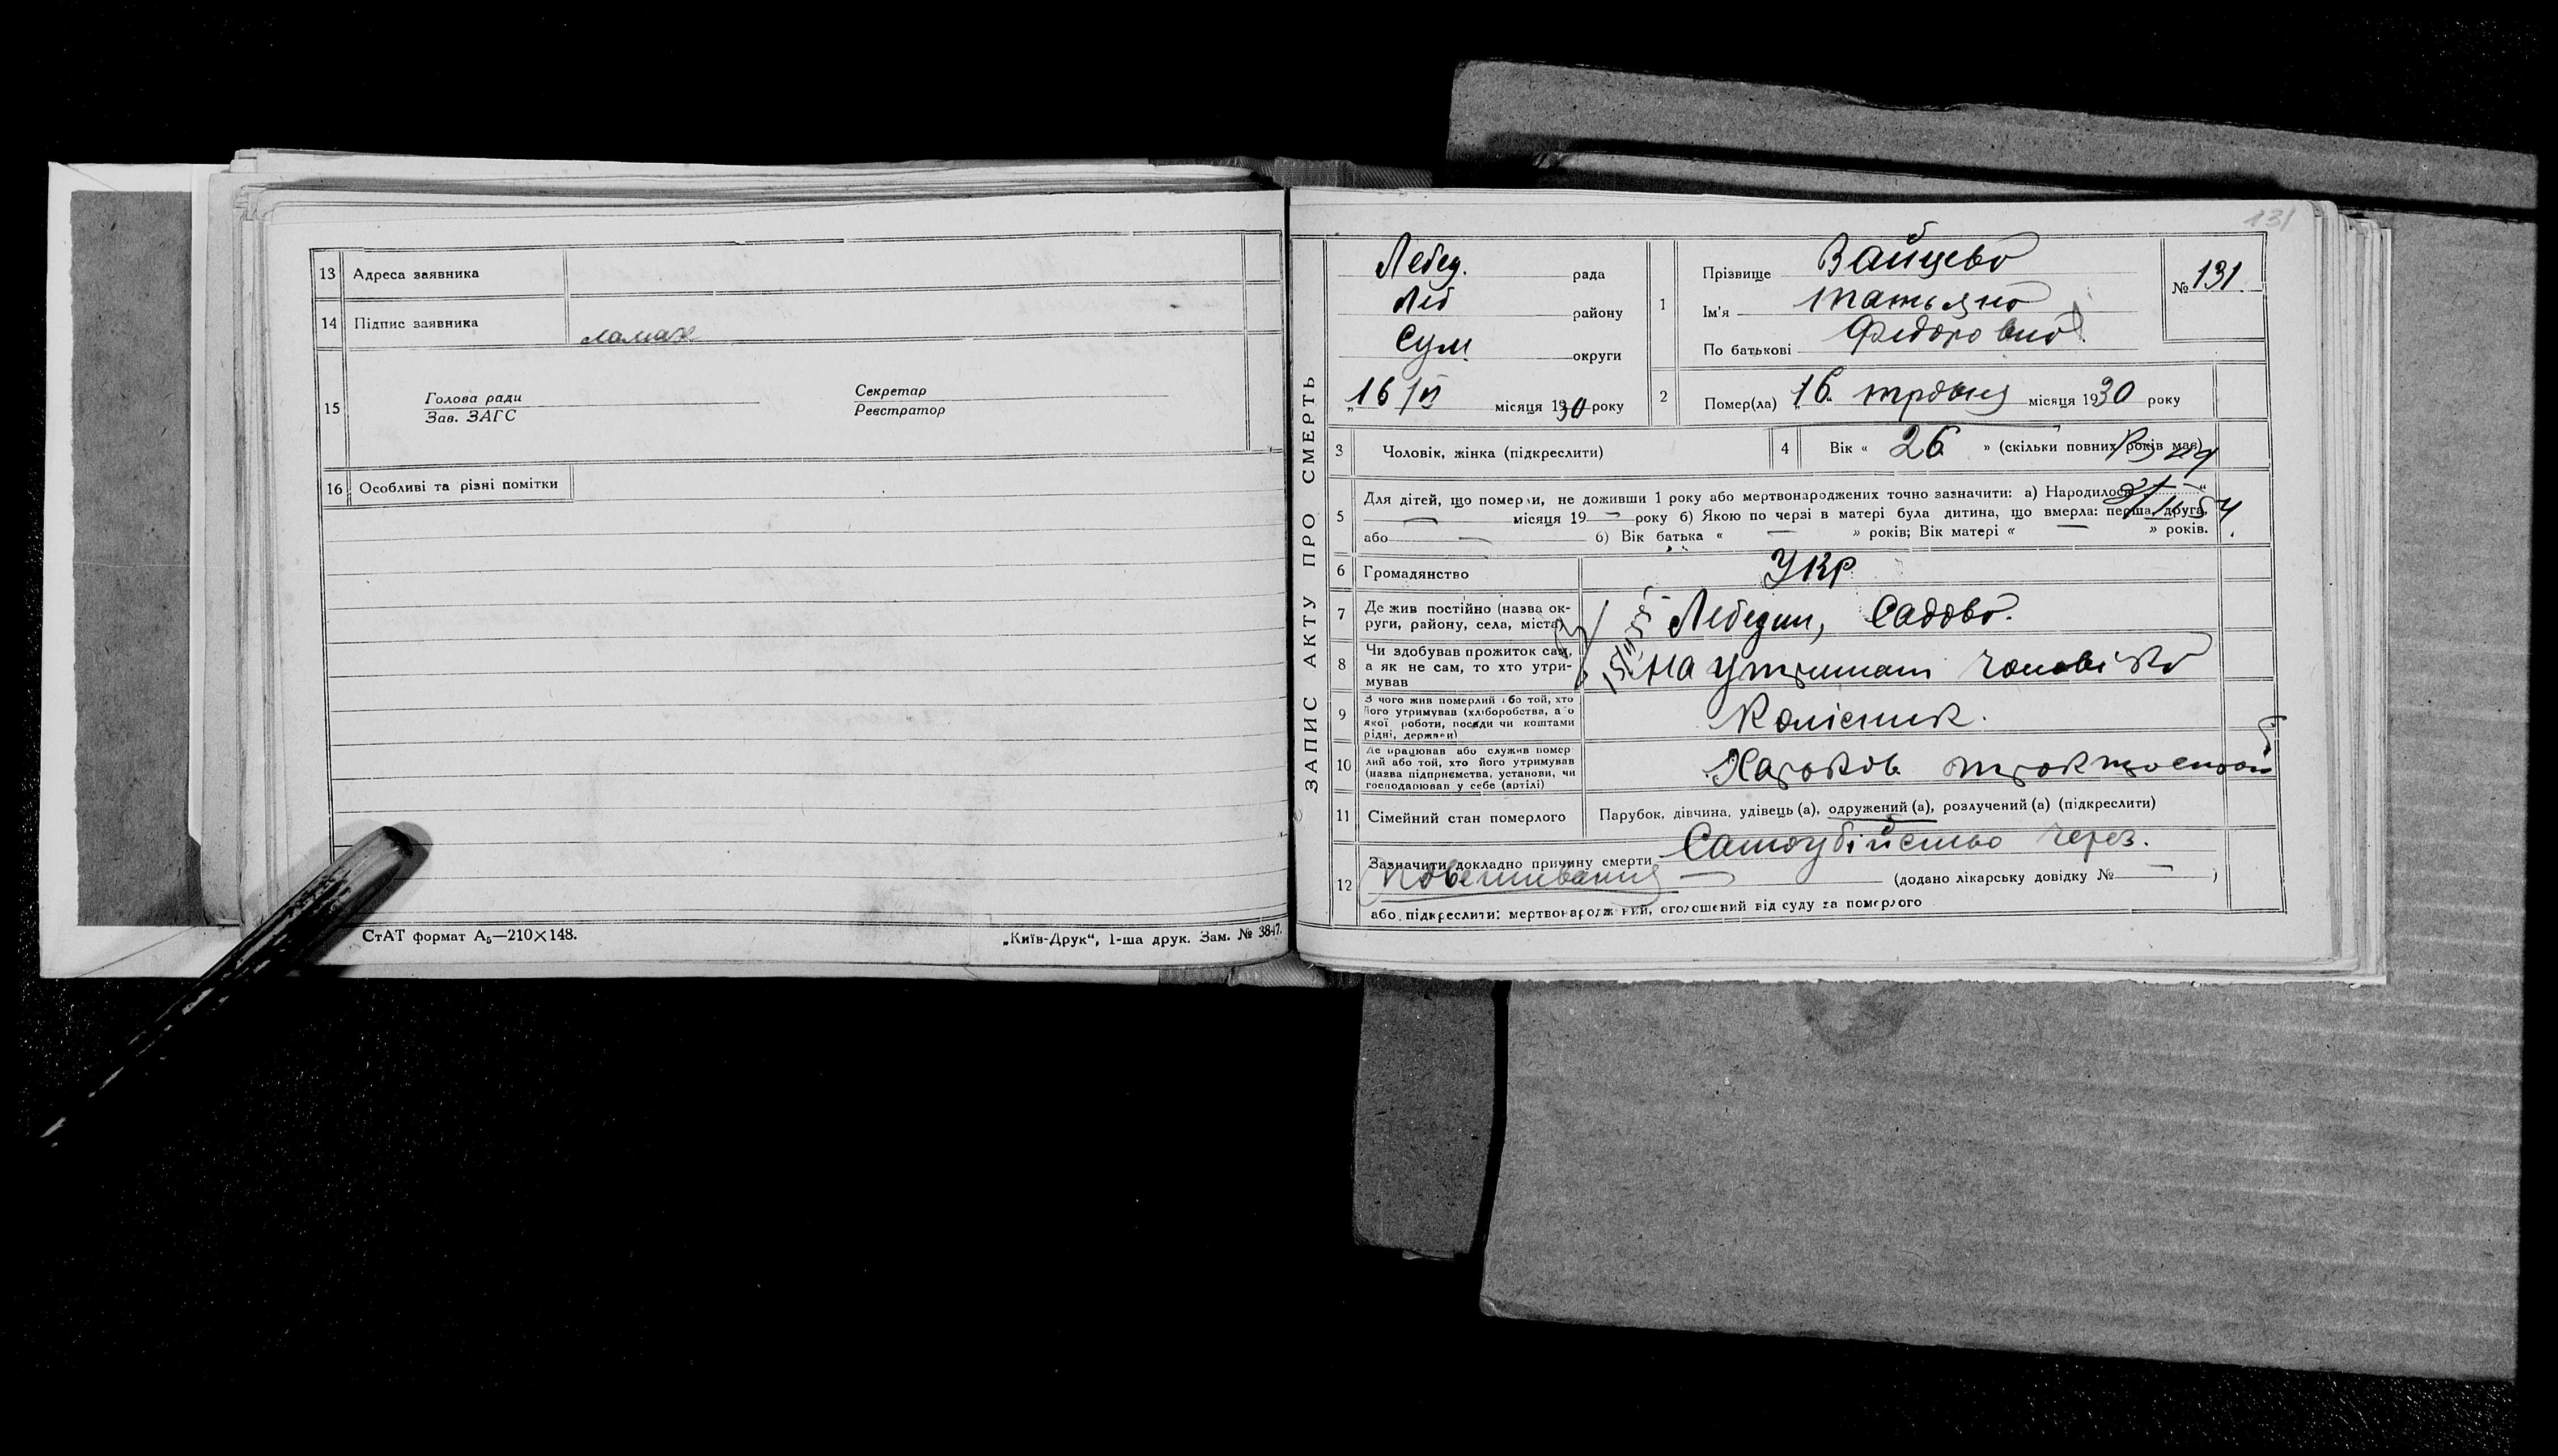 13 Адреса заявника
14 Підпис заявника
15 Голова ради
Зав. ЗАГС
Секретар
Реєстратор
16 Особливі та різні помітки
СтАТ формат А₅—210×148.
„Київ-Друк“, 1-ша друк. Зам. № 3847.
131
ЗАПИС АКТУ ПРО СМЕРТЬ
Лебед. рада
Леб району
Сум округи
„16/VI місяця 1930 року
1 Прізвище Зайцева
Ім'я Татьяна
По батькові Федоровна
№ 131
2 Помер(ла) „16“ травня місяця 1930 року
3 Чоловік, жінка (підкреслити)
4 Вік « 26 » (скільки повних років має)
5 Для дітей, що померли, не доживши 1 року або мертвонароджених точно зазначити: а) Народилося
— місяця 19 — року б) Якою по черзі в матері була дитина, що вмерла: перша, друга,
або — б) Вік батька « — » років; Вік матері « — » років.
6 Громадянство Укр
7 Де жив постійно (назва ок-
руги, району, села, міста) Лебедин, Садова.
8 Чи здобував прожиток сам,
а як не сам, то хто утри-
мував на утриманi чоловіка
9 З чого жив померлий або той, хто
його утримував (хліборобства, а о
якої роботи, посади чи коштами
рідні, держави) Колісник.
10 Де працював або служив помер
лий або той, хто його утримував
(назва підприємства, установи, чи
господарював у себе (артілі) Харьков
11 Сімейний стан померлого Парубок, дівчина, удівець (а), одружений (а), розлучений (а) (підкреслити)
12 Зазначити докладно причину смерти Самоубійство через.
повешивания — (додано лікарську довідку № — )
або підкреслити: мертвонароджений, оголошений від суду за померлого